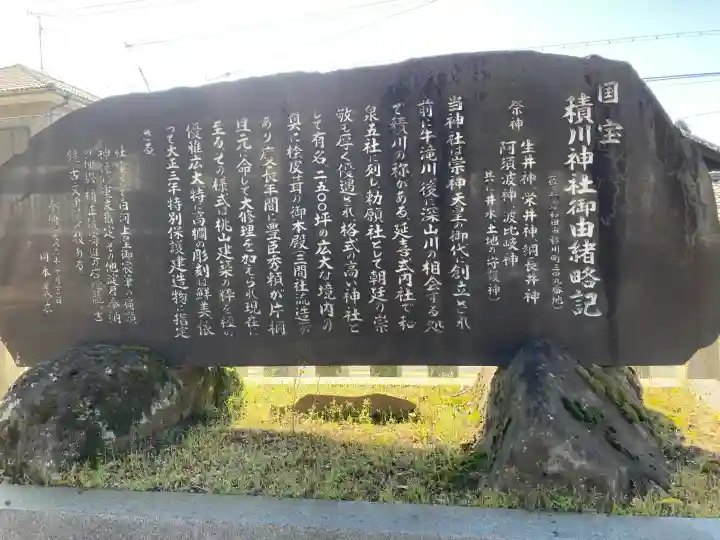 国宝
積川神社御由緒略記
祭神 生井神、栄井神、綱長井神
阿須波神、波比岐神
共に井水、土地の守護神)
当神社は崇神天皇の御代に創立され
前に牛滝川、後に深山川の相会する処
で積川の称がある、延喜式内社で和
泉五社に列し勅願社として朝廷の崇
敬も厚く優遇され格式の高い神社と
して有名、二五〇〇坪の広大な境内の
奥に桧皮葺の御本殿(三間社流造)が
あり慶長年間に豊臣秀頼が片桐
且元に命して大修理を加えられ現在に
至るその様式は桃山建築の粋を極め
優雅広大特に高欄の彫刻は鮮美、依
って大正三年特別保護建造物に指定
さる